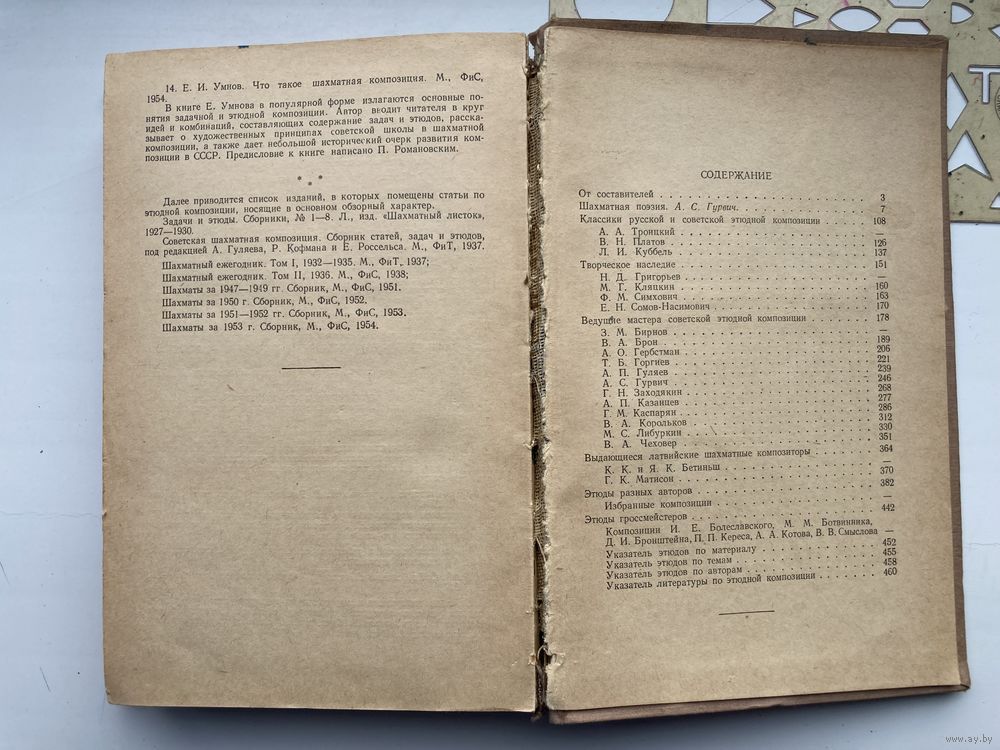 14. Е. И. Умнов. Что такое шахматная композиция. М., ФиС,
1954.
В книге Е. Умнова в популярной форме излагаются основные по-
нятия задачной и этюдной композиции. Автор вводит читателя в круг
идей и комбинаций, составляющих содержание задач и этюдов, расска-
зывает о художественных принципах советской школы в шахматной
композиции, а также дает небольшой исторический очерк развития ком-
позиции в СССР. Предисловие к книге написано П. Романовским.
* * *
Далее приводится список изданий, в которых помещены статьи по
этюдной композиции, носящие в основном обзорный характер.
Задачи и этюды. Сборники, № 1—8. Л., изд. «Шахматный листок»,
1927—1930.
Советская шахматная композиция. Сборник статей, задач и этюдов,
под редакцией А. Гуляева, Р. Кофмана и Е. Россельса. М., ФиТ, 1937.
Шахматный ежегодник. Том I, 1932—1935. М., ФиТ. 1937;
Шахматный ежегодник. Том II, 1936. М., ФиС, 1938;
Шахматы за 1947—1949 гг. Сборник, М., ФиС, 1951.
Шахматы за 1950 г. Сборник, М., ФиС, 1952.
Шахматы за 1951—1952 гг. Сборник, М., ФиС, 1953.
Шахматы за 1953 г. Сборник, М., ФиС, 1954.
СОДЕРЖАНИЕ
От составителей . . . 3
Шахматная поэзия. А. С. Гурвич. . . . 7
Классики русской и советской этюдной композиции . . . 108
А. А. Троицкий . . . —
В. Н. Платов . . . 126
Л. И. Куббель . . . 137
Творческое наследие . . . 151
Н. Д. Григорьев . . . —
М. Г. Кляцкин . . . 160
Ф. М. Симхович . . . 163
Е. Н. Сомов-Насимович . . . 170
Ведущие мастера советской этюдной композиции . . . 178
З. М. Бирнов . . . —
В. А. Брон . . . 189
А. О. Гербстман . . . 206
Т. Б. Горгиев . . . 221
А. П. Гуляев . . . 239
А. С. Гурвич . . . 246
Г. Н. Заходякин . . . 268
А. П. Казанцев . . . 277
Г. М. Каспарян . . . 286
В. А. Корольков . . . 312
М. С. Либуркин . . . 330
В. А. Чеховер . . . 351
Выдающиеся латвийские шахматные композиторы . . . 364
К. К. и Я. К. Бетиньш . . . —
Г. К. Матисон . . . 370
Этюды разных авторов . . . 382
Избранные композиции . . . —
Этюды гроссмейстеров . . . 442
Композиции И. Е. Болеславского, М. М. Ботвинника,
Д. И. Бронштейна, П. П. Кереса, А. А. Котова, В. В. Смыслова —
Указатель этюдов по материалу . . . 452
Указатель этюдов по темам . . . 455
Указатель этюдов по авторам . . . 458
Указатель литературы по этюдной композиции . . . 460
www.ay.by